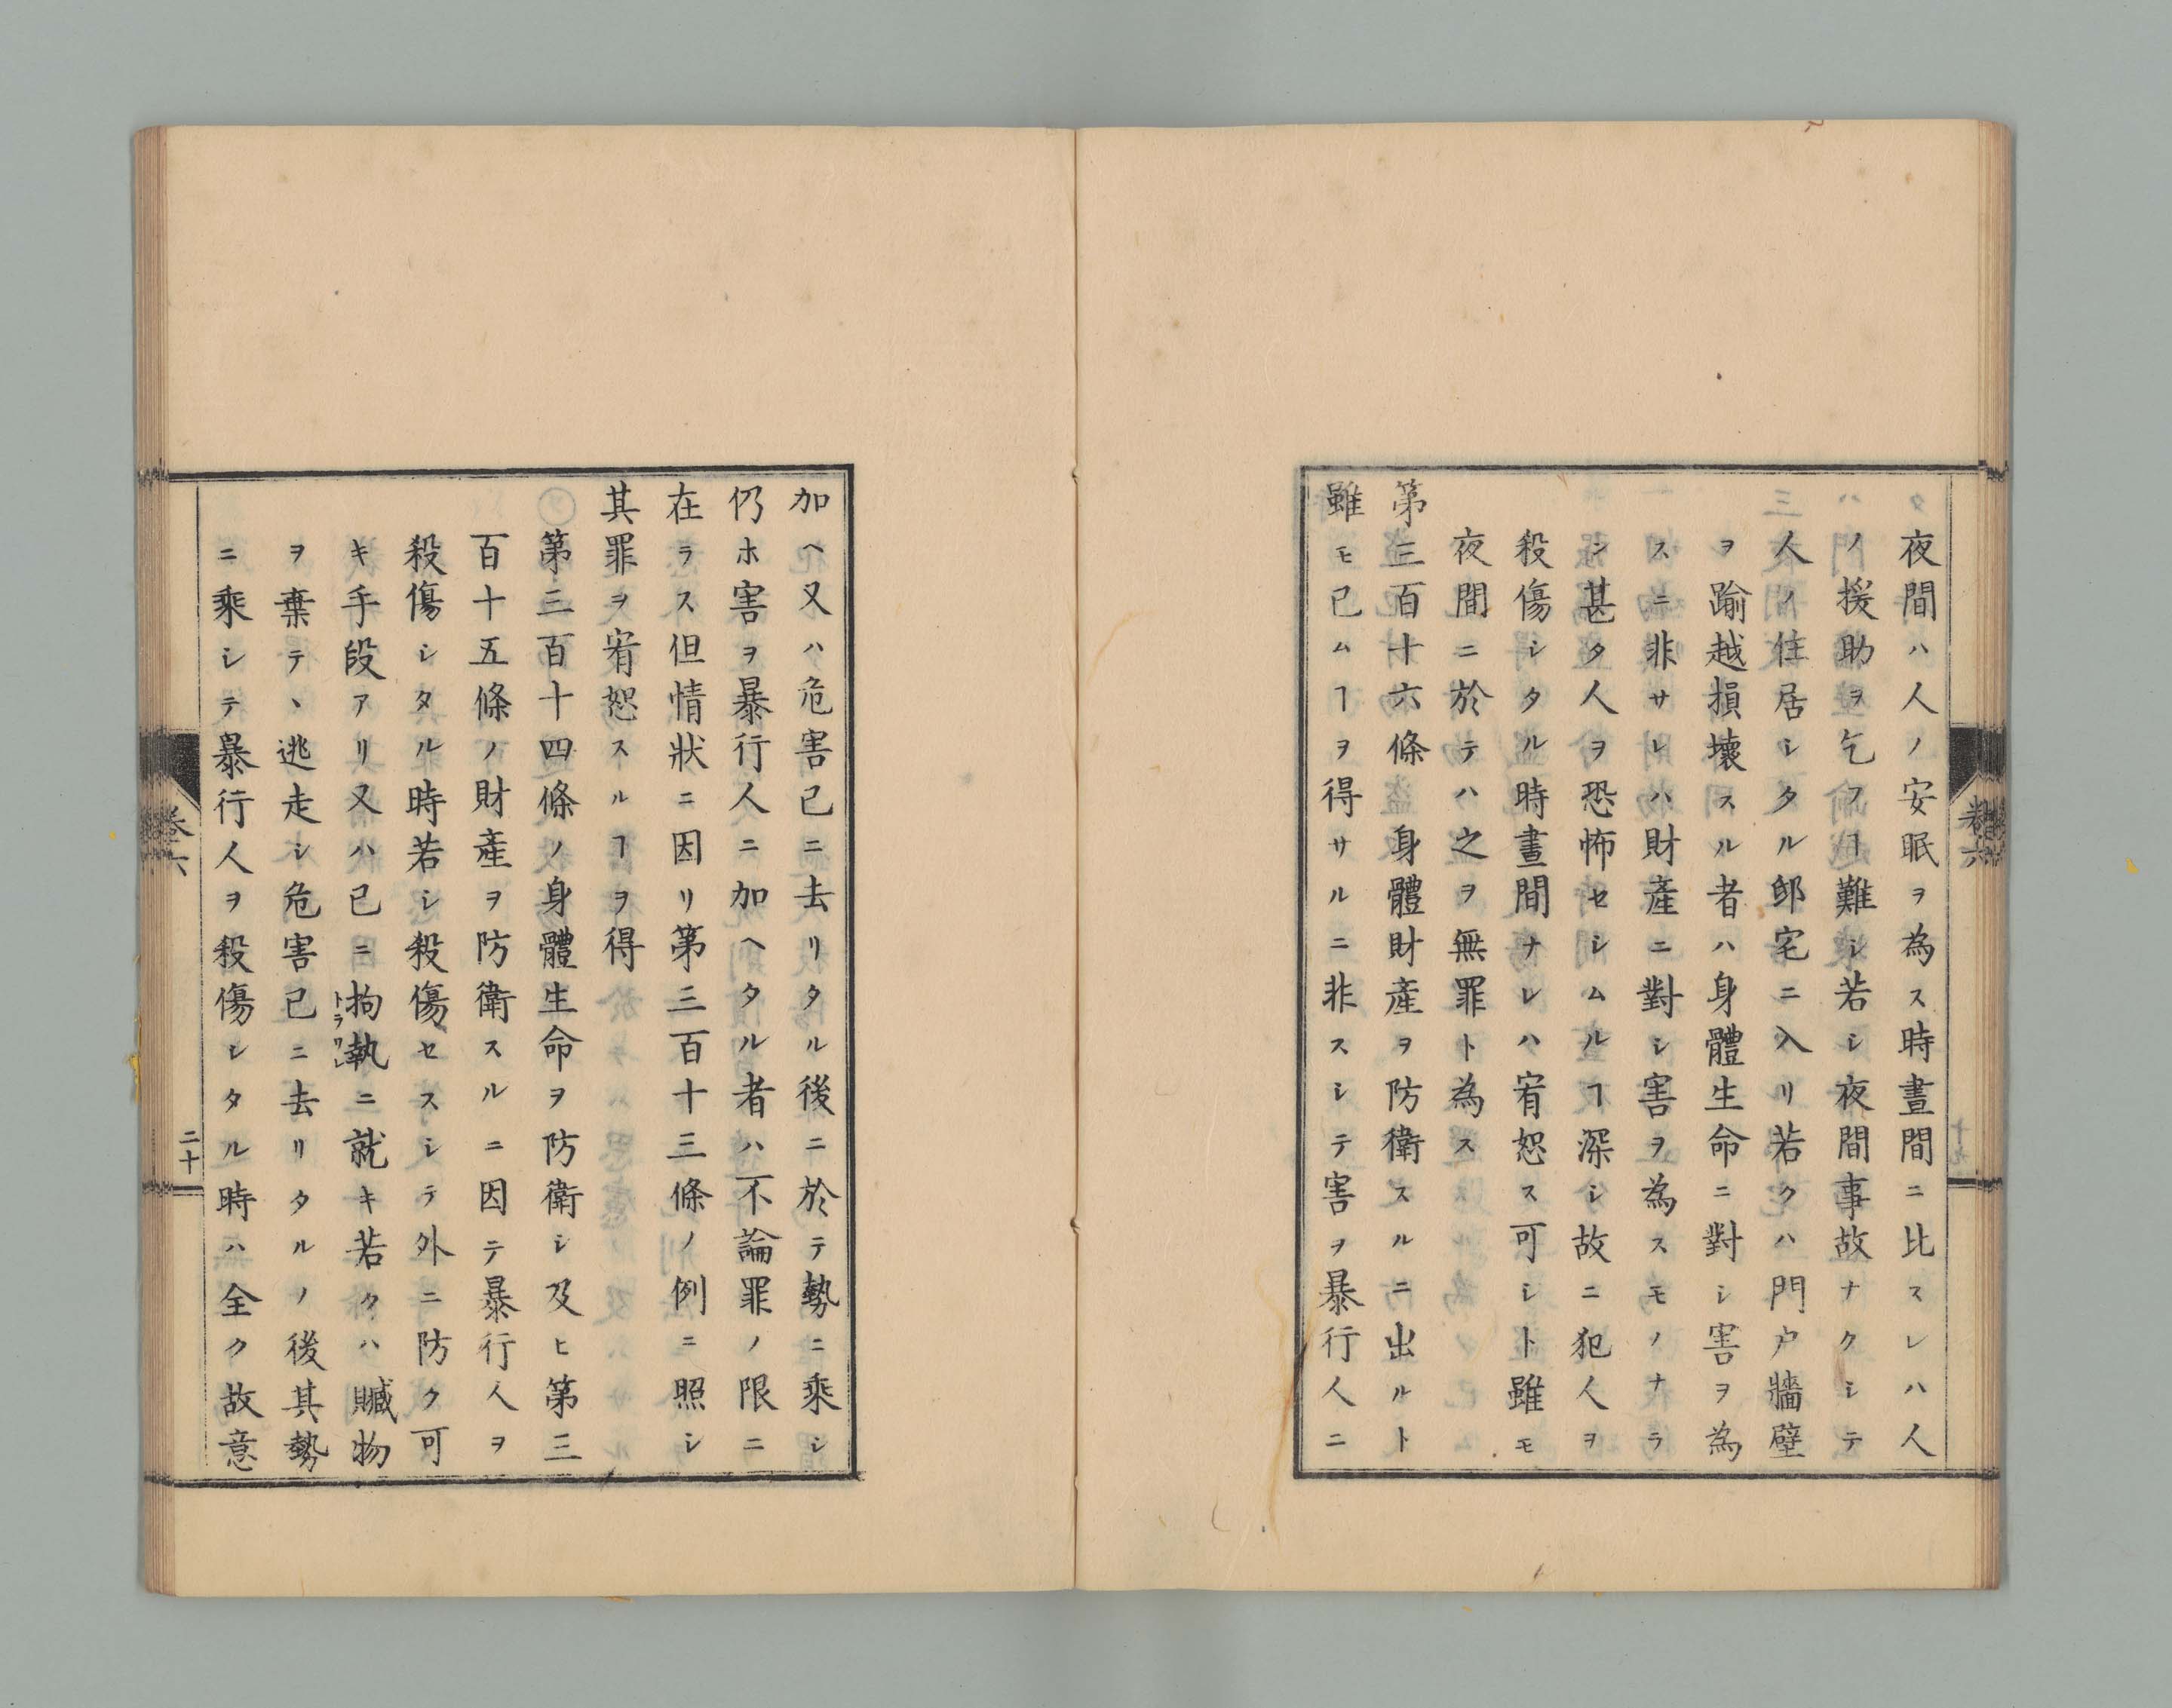 夜間ハ人ノ安眠ヲ為ス時晝間ニ比スレハ人
ノ援助ヲ乞フヿ難シ若シ夜間事故ナクシテ
人ノ住居シタル邸宅ニ入リ若クハ門户牆壁
ヲ踰越損壞スル者ハ身體生命ニ對シ害ヲ為
スニ非サレハ財產ニ對シ害ヲ為スモノナラ
シ甚タ人ヲ恐怖セシムルヿ深シ故ニ犯人ヲ
殺傷シタル時晝間ナレハ宥恕ス可シト雖モ
夜間ニ於テハ之ヲ無罪ト為ス
第三百十六條身體財產ヲ防衛スルニ出ルト
雖モ已ムヿヲ得サルニ非スシテ害ヲ暴行人ニ
卷六
加ヘ又ハ危害已ニ去リタル後ニ於テ勢ニ乘シ
仍ホ害ヲ暴行人ニ加ヘタル者ハ不論罪ノ限ニ
在ラス但情狀ニ因リ第三百十三條ノ例ニ照シ
其罪ヲ宥恕スルヿヲ得
第三百十四條ノ身體生命ヲ防衛シ及ヒ第三
百十五條ノ財產ヲ防衛スルニ因テ暴行人ヲ
殺傷シタル時若シ殺傷セスシテ外ニ防ク可
キ手段アリ又ハ已ニ拘執ニ就キ若クハ贓物
ヲ棄テヽ逃走シ危害已ニ去リタルノ後其勢
ニ乘シテ暴行人ヲ殺傷シタル時ハ全ク故意
卷六
二十